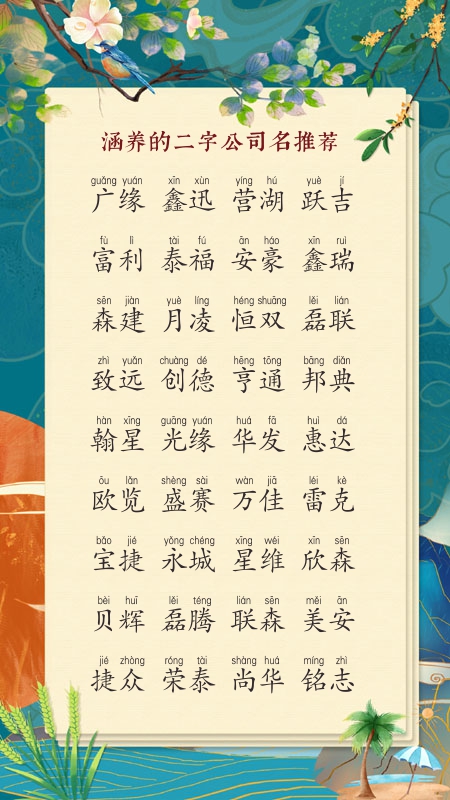 涵养的二字公司名推荐
guǎng yuán xīn xùn yíng hú yuè jí
广缘 鑫迅 营湖 跃吉
fù lì tài fú ān háo xīn ruì
富利 泰福 安豪 鑫瑞
sēn jiàn yuè líng héng shuāng lěi lián
森建 月凌 恒双 磊联
zhì yuǎn chuàng dé hēng tōng bāng diǎn
致远 创德 亨通 邦典
hàn xīng guāng yuán huá fā huì dá
翰星 光缘 华发 惠达
ōu lǎn shèng sài wàn jiā léi kè
欧览 盛赛 万佳 雷克
bǎo jié yǒng chéng xīng wéi xīn sēn
宝捷 永城 星维 欣森
bèi huī lěi téng lián sēn měi ān
贝辉 磊腾 联森 美安
jié zhòng róng tài shàng huá míng zhì
捷众 荣泰 尚华 铭志